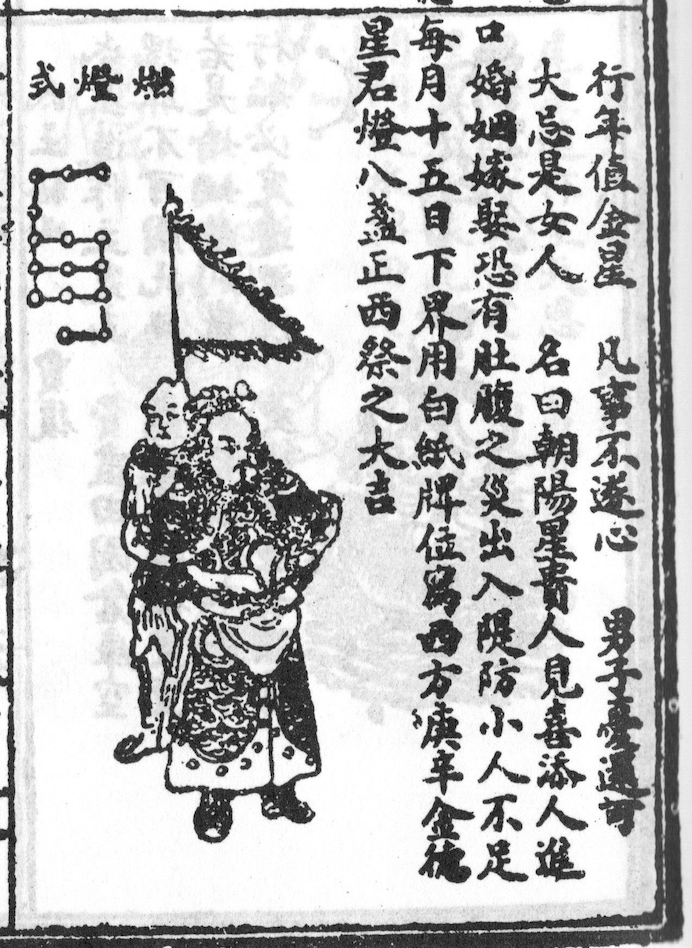 行年值金星　凡事不遂心　男子憂還可
大忌是女人　名曰朝陽星貴人見喜添人進
口婚姻嫁娶恐有肚腹之災出入隄防小人不足
每月十五日下界用白紙牌位寫西方庚辛金德
星君燈八盞正西祭之大吉
燃燈式